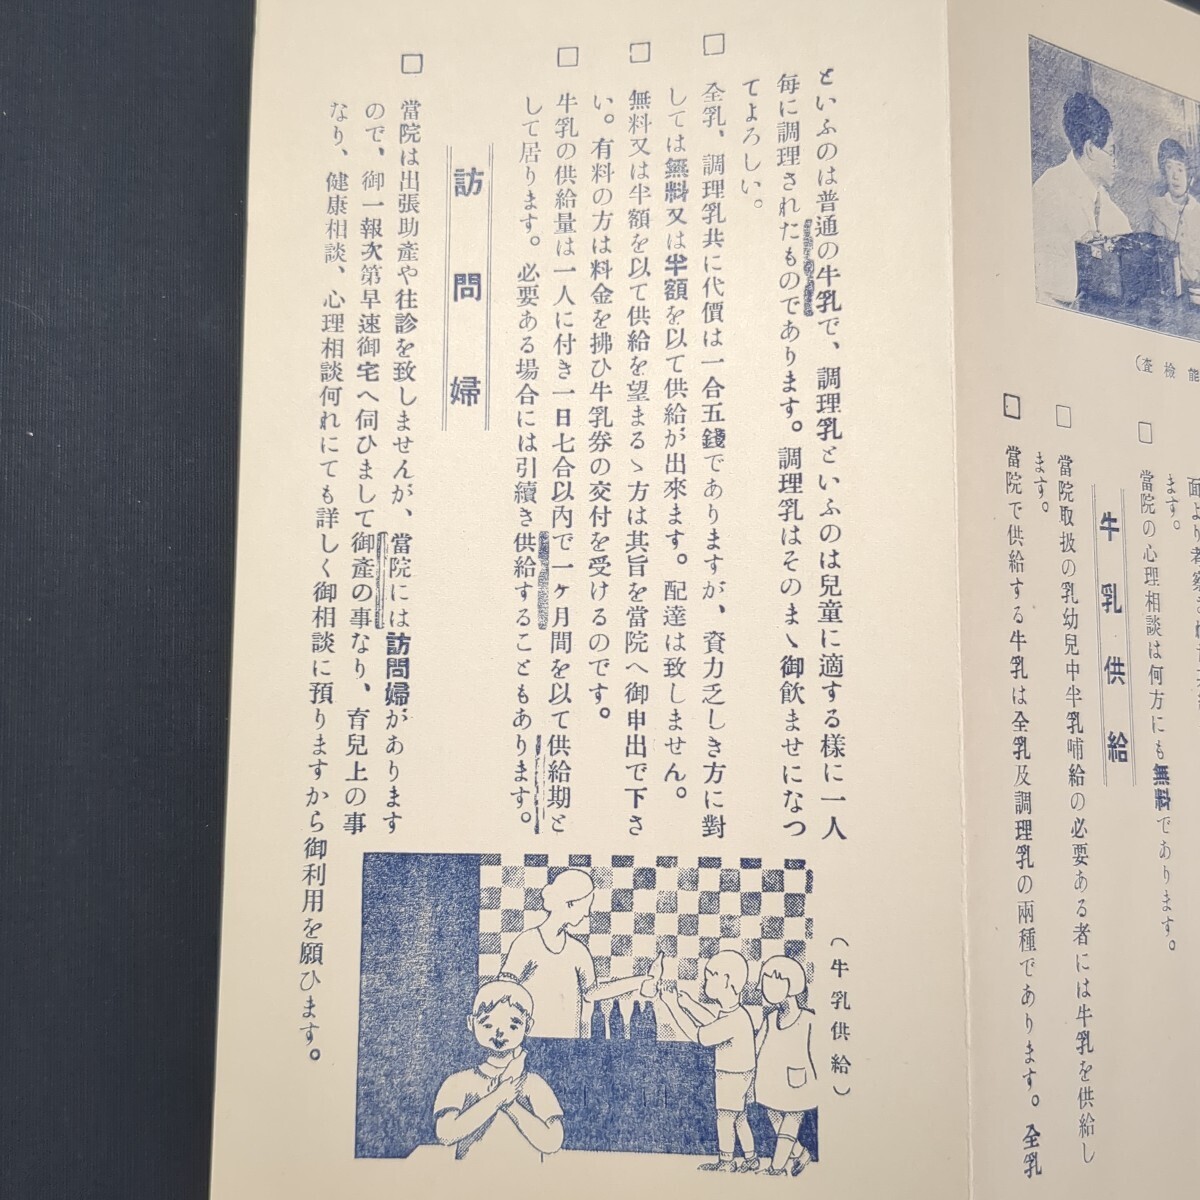 ます。
當院の心理相談は何方にも無料であります。
牛乳供給
□ 當院取扱の乳幼兒中半乳哺給の必要ある者には牛乳を供給し
ます。
□ 當院で供給する牛乳は全乳及調理乳の兩種であります。全乳
といふのは普通の牛乳で、調理乳といふのは兒童に適する樣に一人
毎に調理されたものであります。調理乳はそのまゝ御飮ませになつ
てよろしい。
□ 全乳、調理乳共に代價は一合五錢でありますが、資力乏しき方に對
しては無料又は半額を以て供給が出來ます。配達は致しません。
□ 無料又は半額を以て供給を望まるゝ方は其旨を當院へ御申出で下さ
い。有料の方は料金を拂ひ牛乳券の交付を受けるのです。
□ 牛乳の供給量は一人に付き一日七合以內で一ヶ月間を以て供給期と
して居ります。必要ある場合には引續き供給することもあります。
訪問婦
□ 當院は出張助產や往診を致しませんが、當院には訪問婦があります
ので、御一報次第早速御宅へ伺ひまして御產の事なり、育兒上の事
なり、健康相談、心理相談何れにても詳しく御相談に預りますから御利用を願ひます。
（牛乳供給）